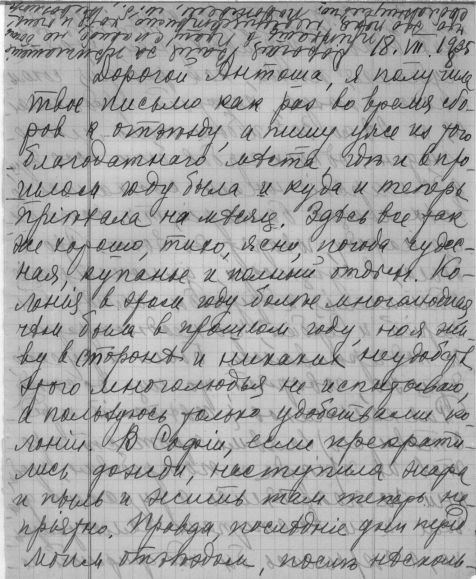 18. VII. 1935
Дорогой Антоша, я получила
твое письмо как раз во время сбо-
ров к отъѣзду, а пишу уже из того
благодатнаго мѣста, гдѣ и в про-
шлом году была и куда и теперь
приѣхала на мѣсяц. Здѣсь все так
же хорошо, тихо, ясно, погода чудес-
ная, купанье и полный отдых. Ко-
лонія в этом году болѣе многолюдная
чѣм была в прошлом году, но я жи-
ву в сторонѣ и никаких неудобств
этого многолюдья не испытываю,
а пользуюсь только удобствами ко-
лоніи. В Софіи, если прекрати-
лись дожди, наступила жара
и пыль и жить там теперь не-
пріятно. Правда, послѣдніе дни перед
моим отъѣздом, послѣ нѣсколь-